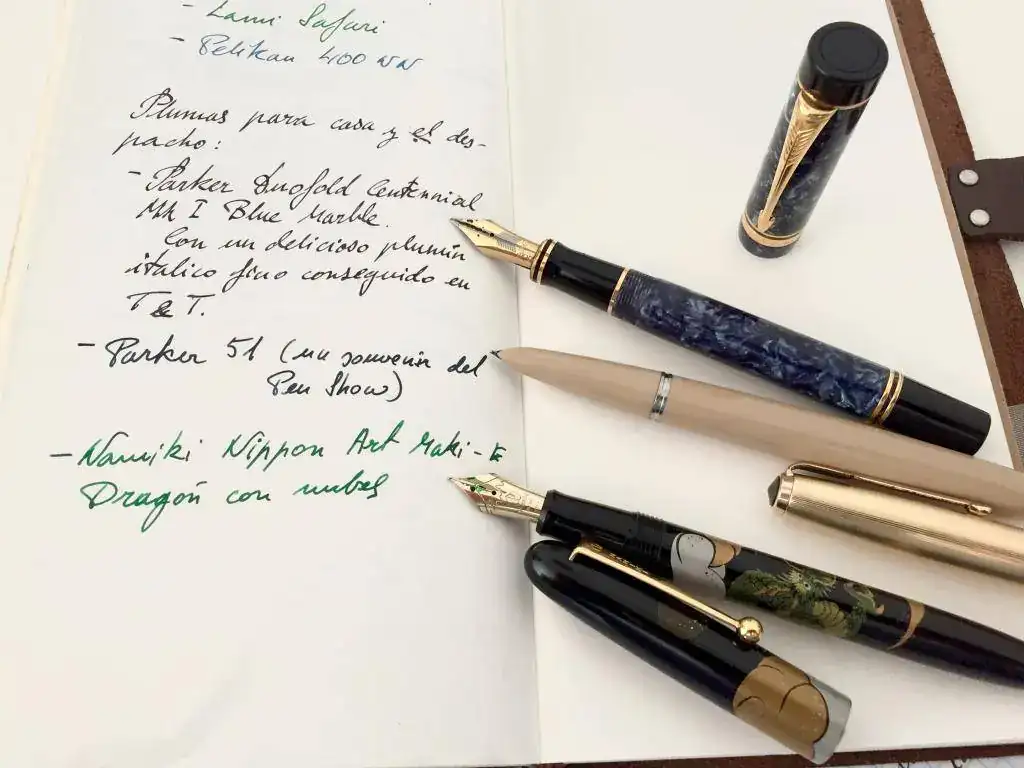 - Lami Safari
- Pelikan 400 NN
Plumas para casa y el des-
pacho:
- Parker Duofold Centennial
Mk I Blue Marble.
Con un delicioso plumín
itálico fino conseguido en
T & T.
- Parker 51 (un souvenir del
Pen Show)
- Namiki Nippon Art Maki-E
Dragón con nubes